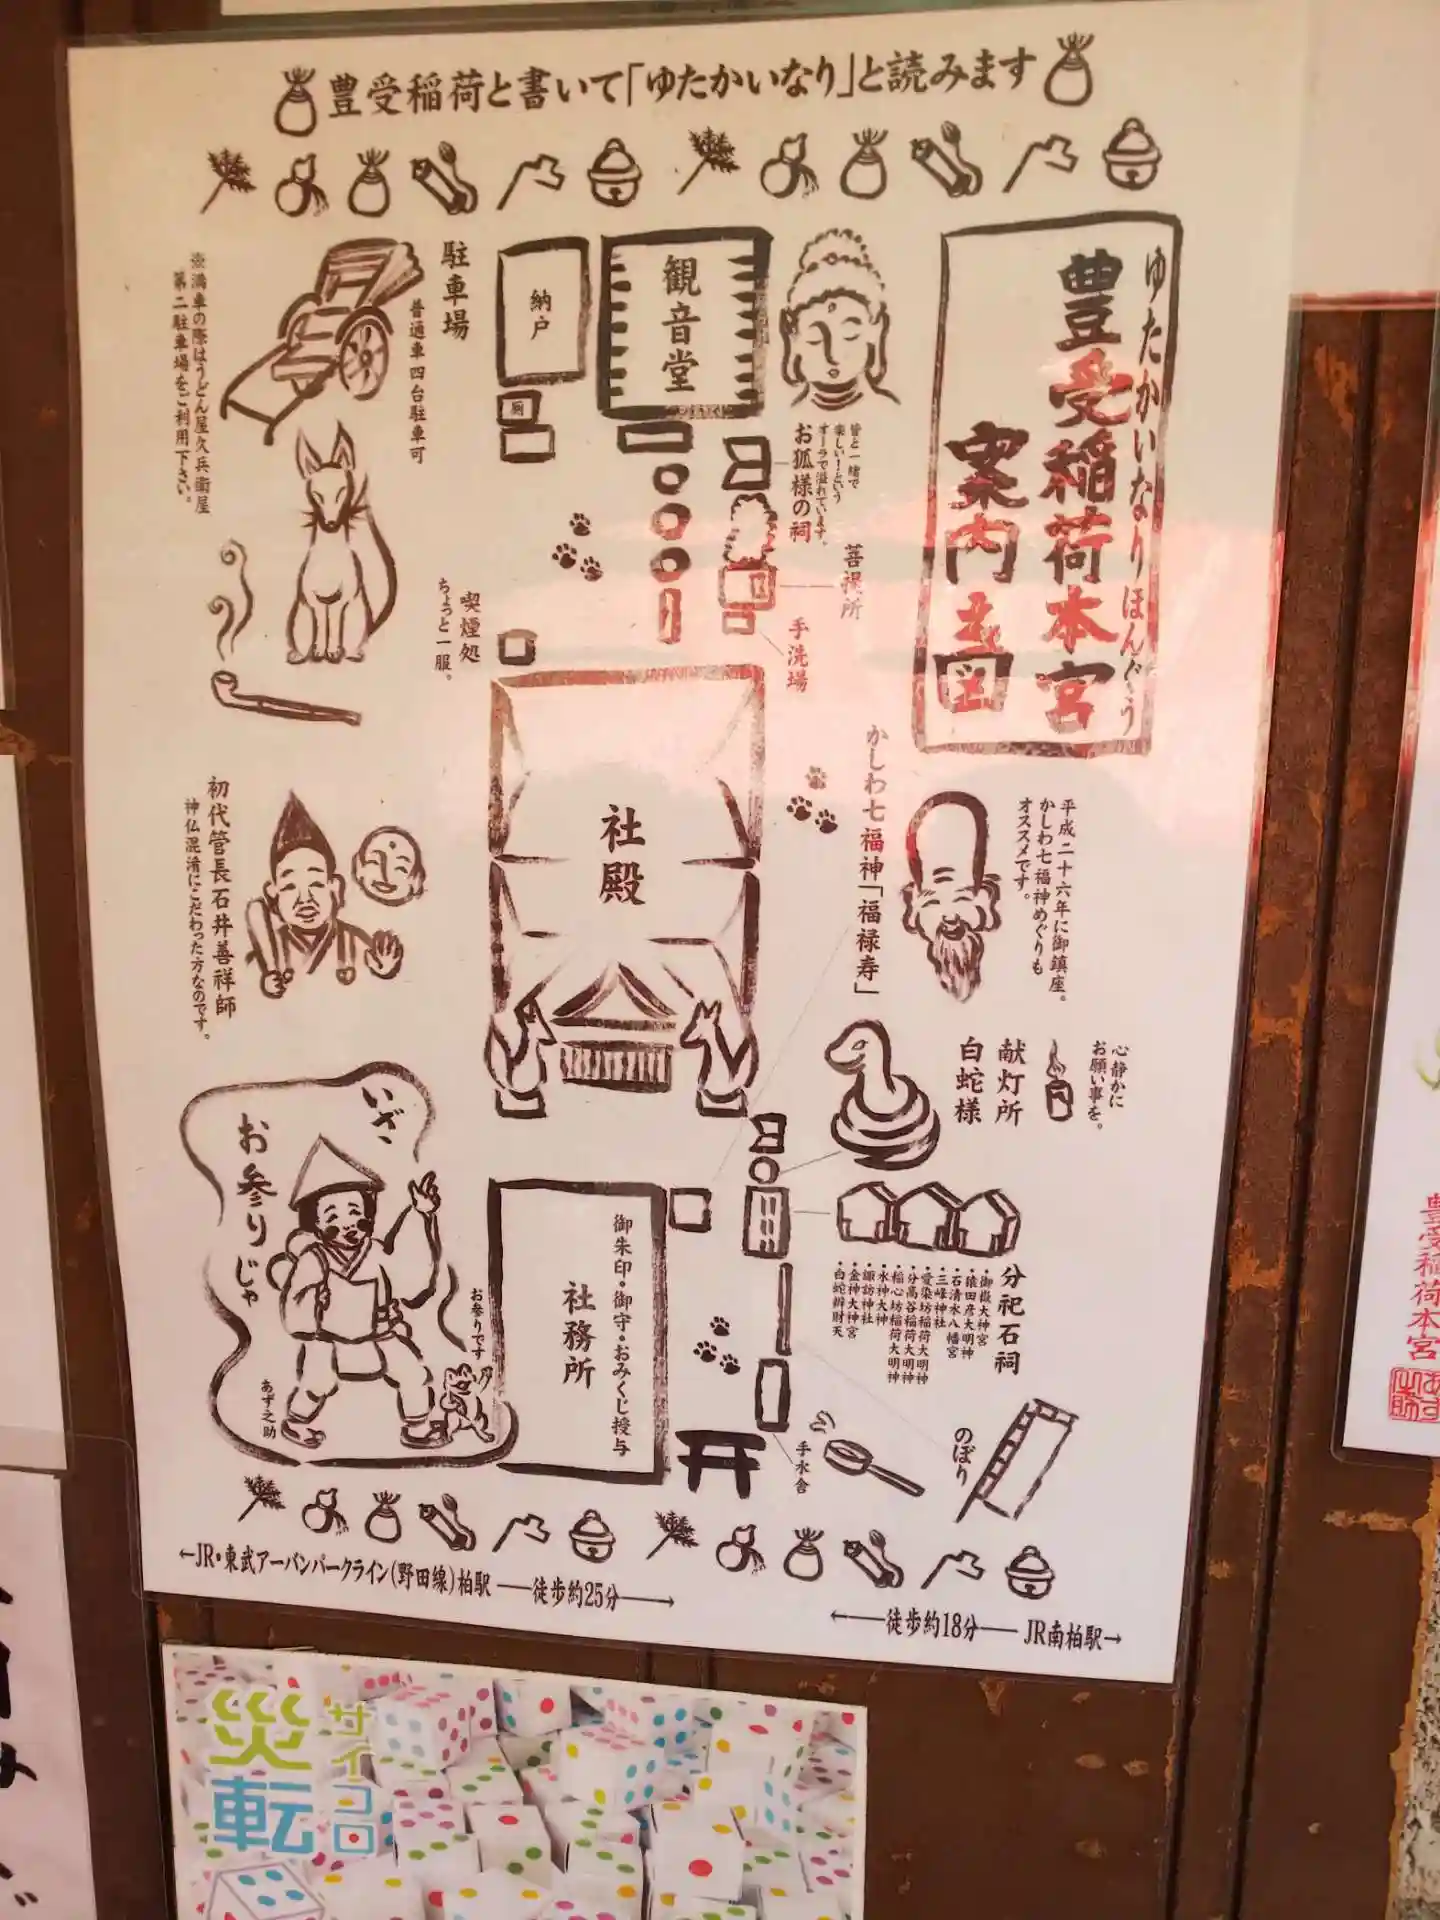 豊受稲荷と書いて「ゆたかいなり」と読みます
ゆたかいなりほんぐう
豊受稲荷本宮
案内図
観音堂
納戸
厠
駐車場
普通車四台駐車可
※満車の際はうどん屋久兵衛屋
第二駐車場をご利用下さい。
皆と一緒で
楽しい!という
オーラで溢れています。
お狐様の祠
菩提所
手洗場
喫煙処
ちょっと一服。
社殿
かしわ七福神「福禄寿」
平成二十六年に御鎮座。
かしわ七福神めぐりも
オススメです。
初代管長石井善祥師
神仏混淆にこだわった方なのです。
心静かに
お願い事を。
献灯所
白蛇様
いざ、
お参りじゃ
お参りです
あず之助
御朱印・御守・おみくじ授与
社務所
分祀石祠
・御嶽大神宮
・猿田彦大明神
・石清水八幡宮
・三峰神社
・愛染坊稲荷大明神
・分高谷稲荷大明神
・稲心坊稲荷大明神
・水神大神
・諏訪神社
・金神大神宮
・白蛇辨財天
のぼり
手水舎
←JR・東武アーバンパークライン(野田線)柏駅 ──徒歩約25分──→
←──徒歩約18分── JR南柏駅→
災転
サイコロ
豊受稲荷本宮